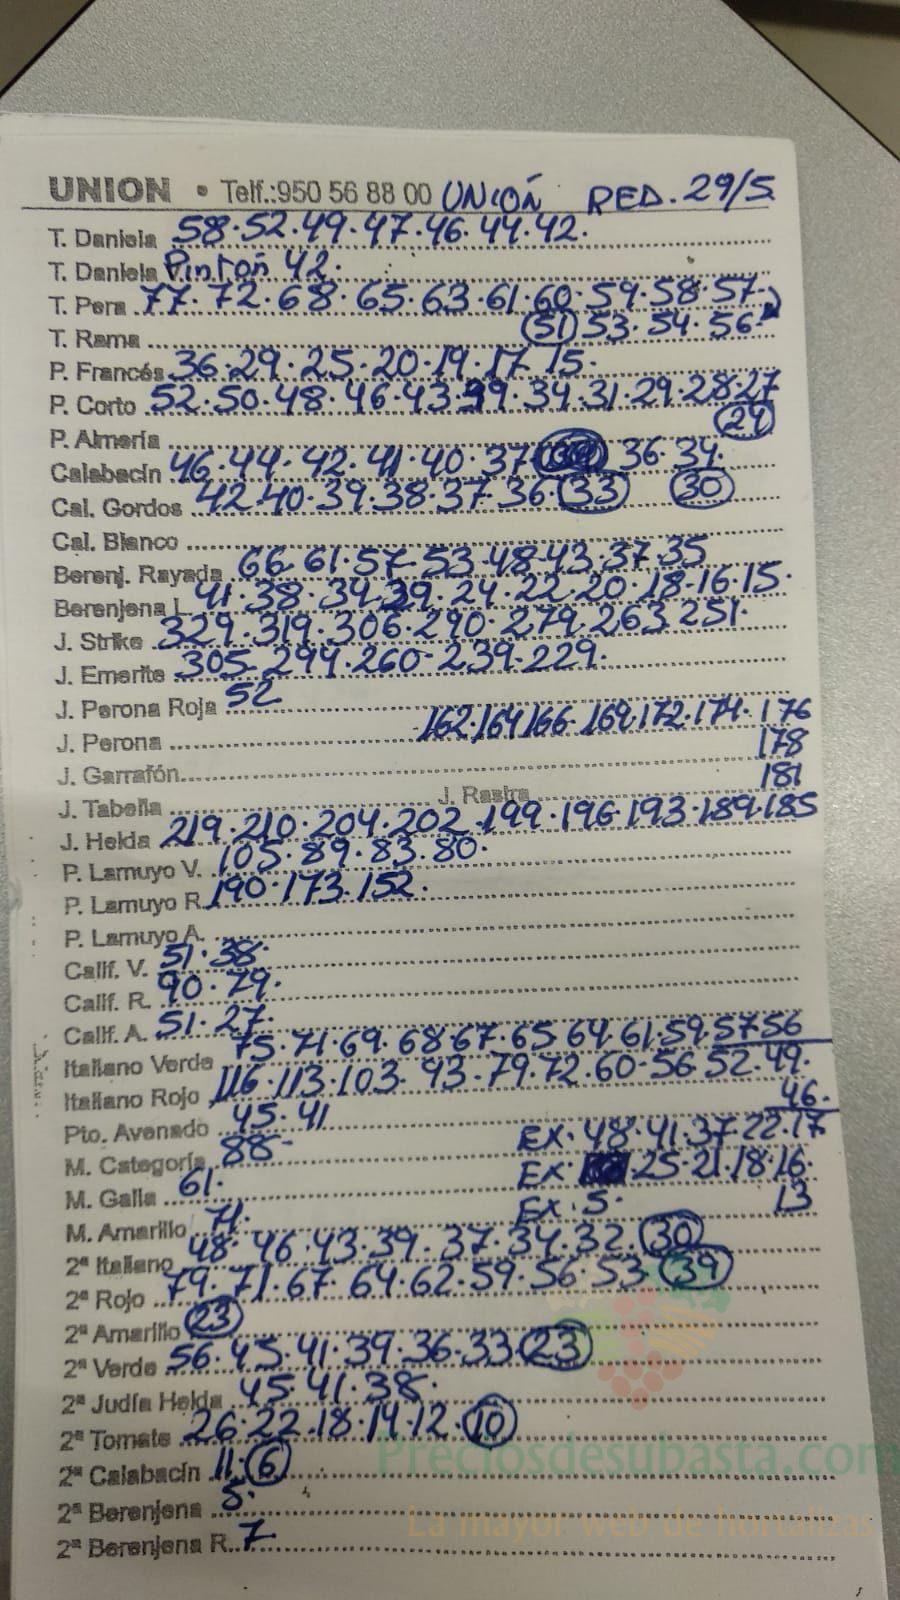 UNION • Telf.:950 56 88 00 UNIÓN RED. 29/5
T. Daniela 58.52.49.47.46.44.42.
T. Daniela Pintón 42.
T. Pera 77.72.68.65.63.61.60.59.58.57
T. Rama 51 53.54.56
P. Francés 36.29.25.20.19.17.15.
P. Corto 52.50.48.46.43.39.34.31.29.28.27
P. Almería 24
Calabacín 46.44.42.41.40.37 36.34.
Cal. Gordos 42.40.39.38.37.36.33 30
Cal. Blanco
Berenj. Rayada 66.61.57.53.48.43.37.35
Berenjena L. 41.38.34.29.24.22.20.18.16.15.
J. Strike 329.319.306.290.279.263.251.
J. Emerite 305.294.260.239.229.
J. Perona Roja 52
J. Perona 162.164.166.169.172.174.176
J. Garrafón 178
J. Tabella J. Rastra 181
J. Helda 219.210.204.202.199.196.193.189.185
P. Lamuyo V. 105.89.83.80.
P. Lamuyo R. 190.173.152.
P. Lamuyo A.
Calif. V. 51.38.
Calif. R. 90.79.
Calif. A. 51.27.
Italiano Verde 75.71.69.68.67.65.64.61.59.57.56
Italiano Rojo 116.113.103.93.79.72.60.56.52.49.
46.
Pto. Avenado 45.41
M. Categoría 88. EX.48.41.37.22.17
M. Galia 61. EX. 25.21.18.16.
M. Amarillo 71. EX.5. 13
2ª Italiano 48.46.43.39.37.34.32.30
2ª Rojo 79.71.67.64.62.59.56.53.39
2ª Amarillo 23
2ª Verde 56.45.41.39.36.33.23
2ª Judía Helda 45.41.38.
2ª Tomate 26.22.18.14.12.10
2ª Calabacín 11.6
2ª Berenjena 5.
2ª Berenjena R. 7
Preciosdesubasta.com
La mayor web de hortalizas